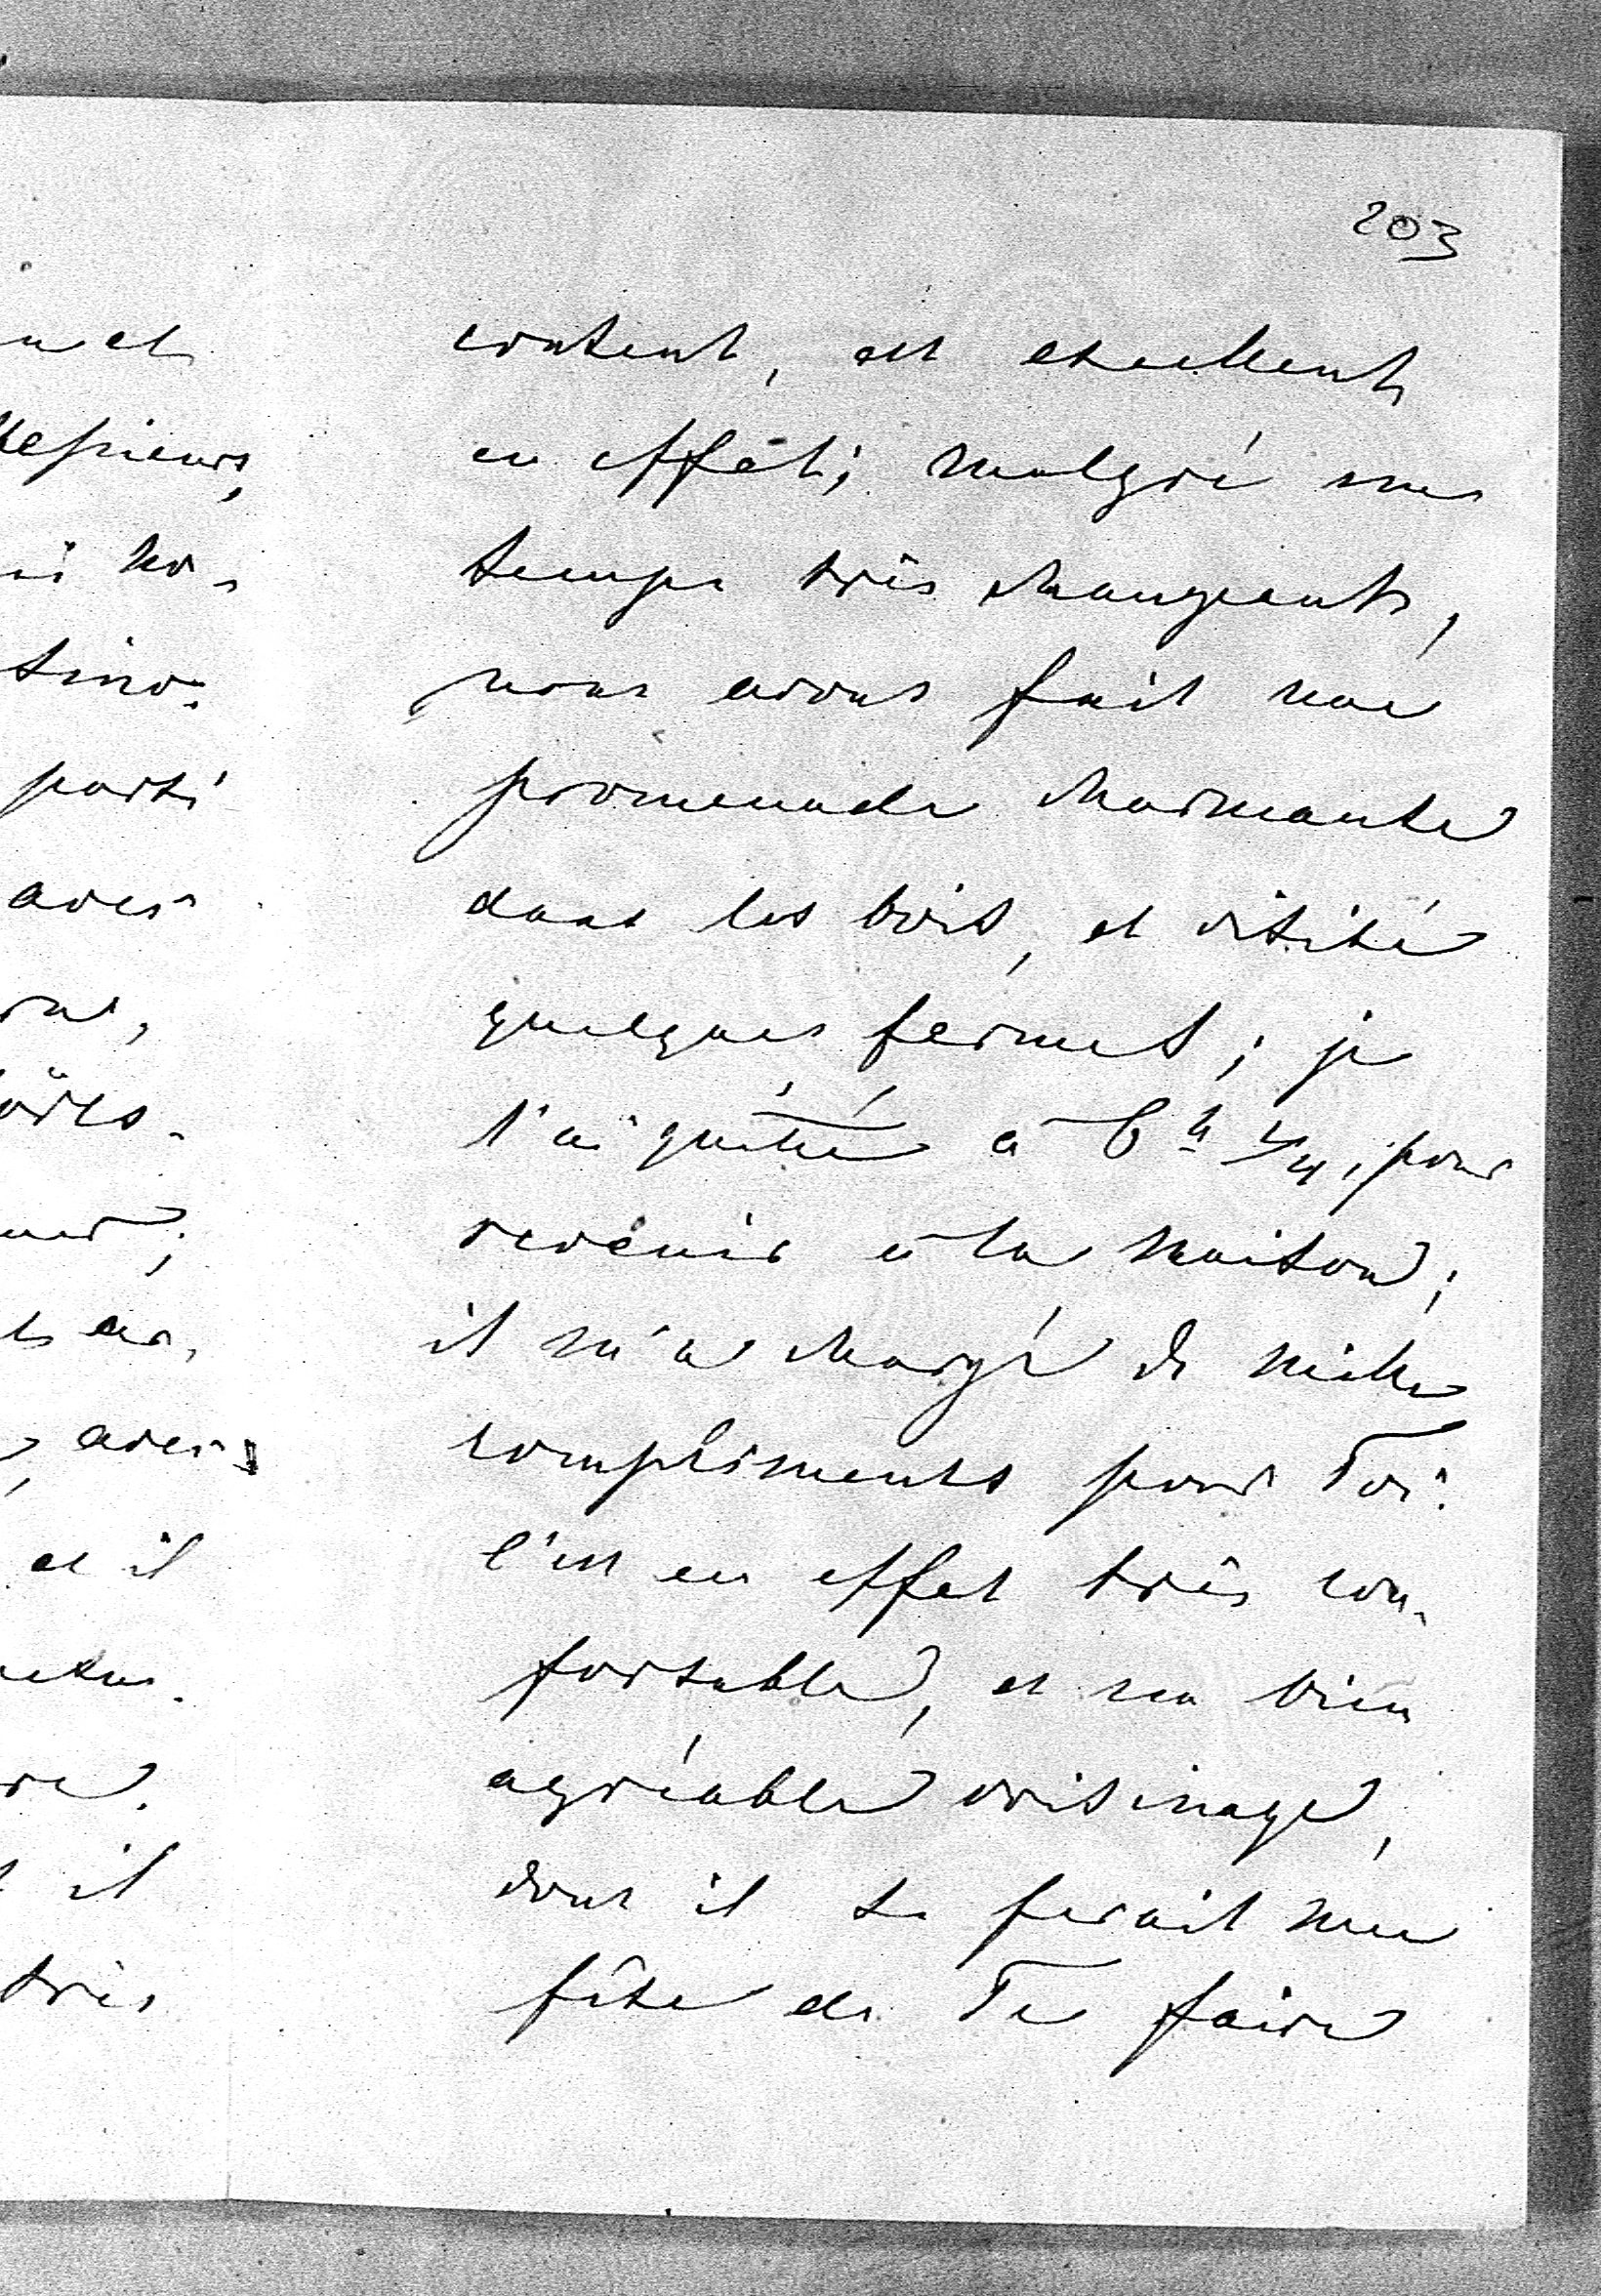 203
content, est excellent
en effet; malgré un
temps très changeant,
nous avons fait une
promenade charmante
dans les bois, et visité
quelques fermes; je
l'ai quitté à 6 h 1/4, pour
revenir à la maison;
il m'a chargé de mille
compliments pour Toi.
C'est en effet très con-
fortable, et un bien
agréable voisinage,
dont il se ferait une
fête de Te faire
et
Messieurs,
parti
avec
avec
et il
il
très